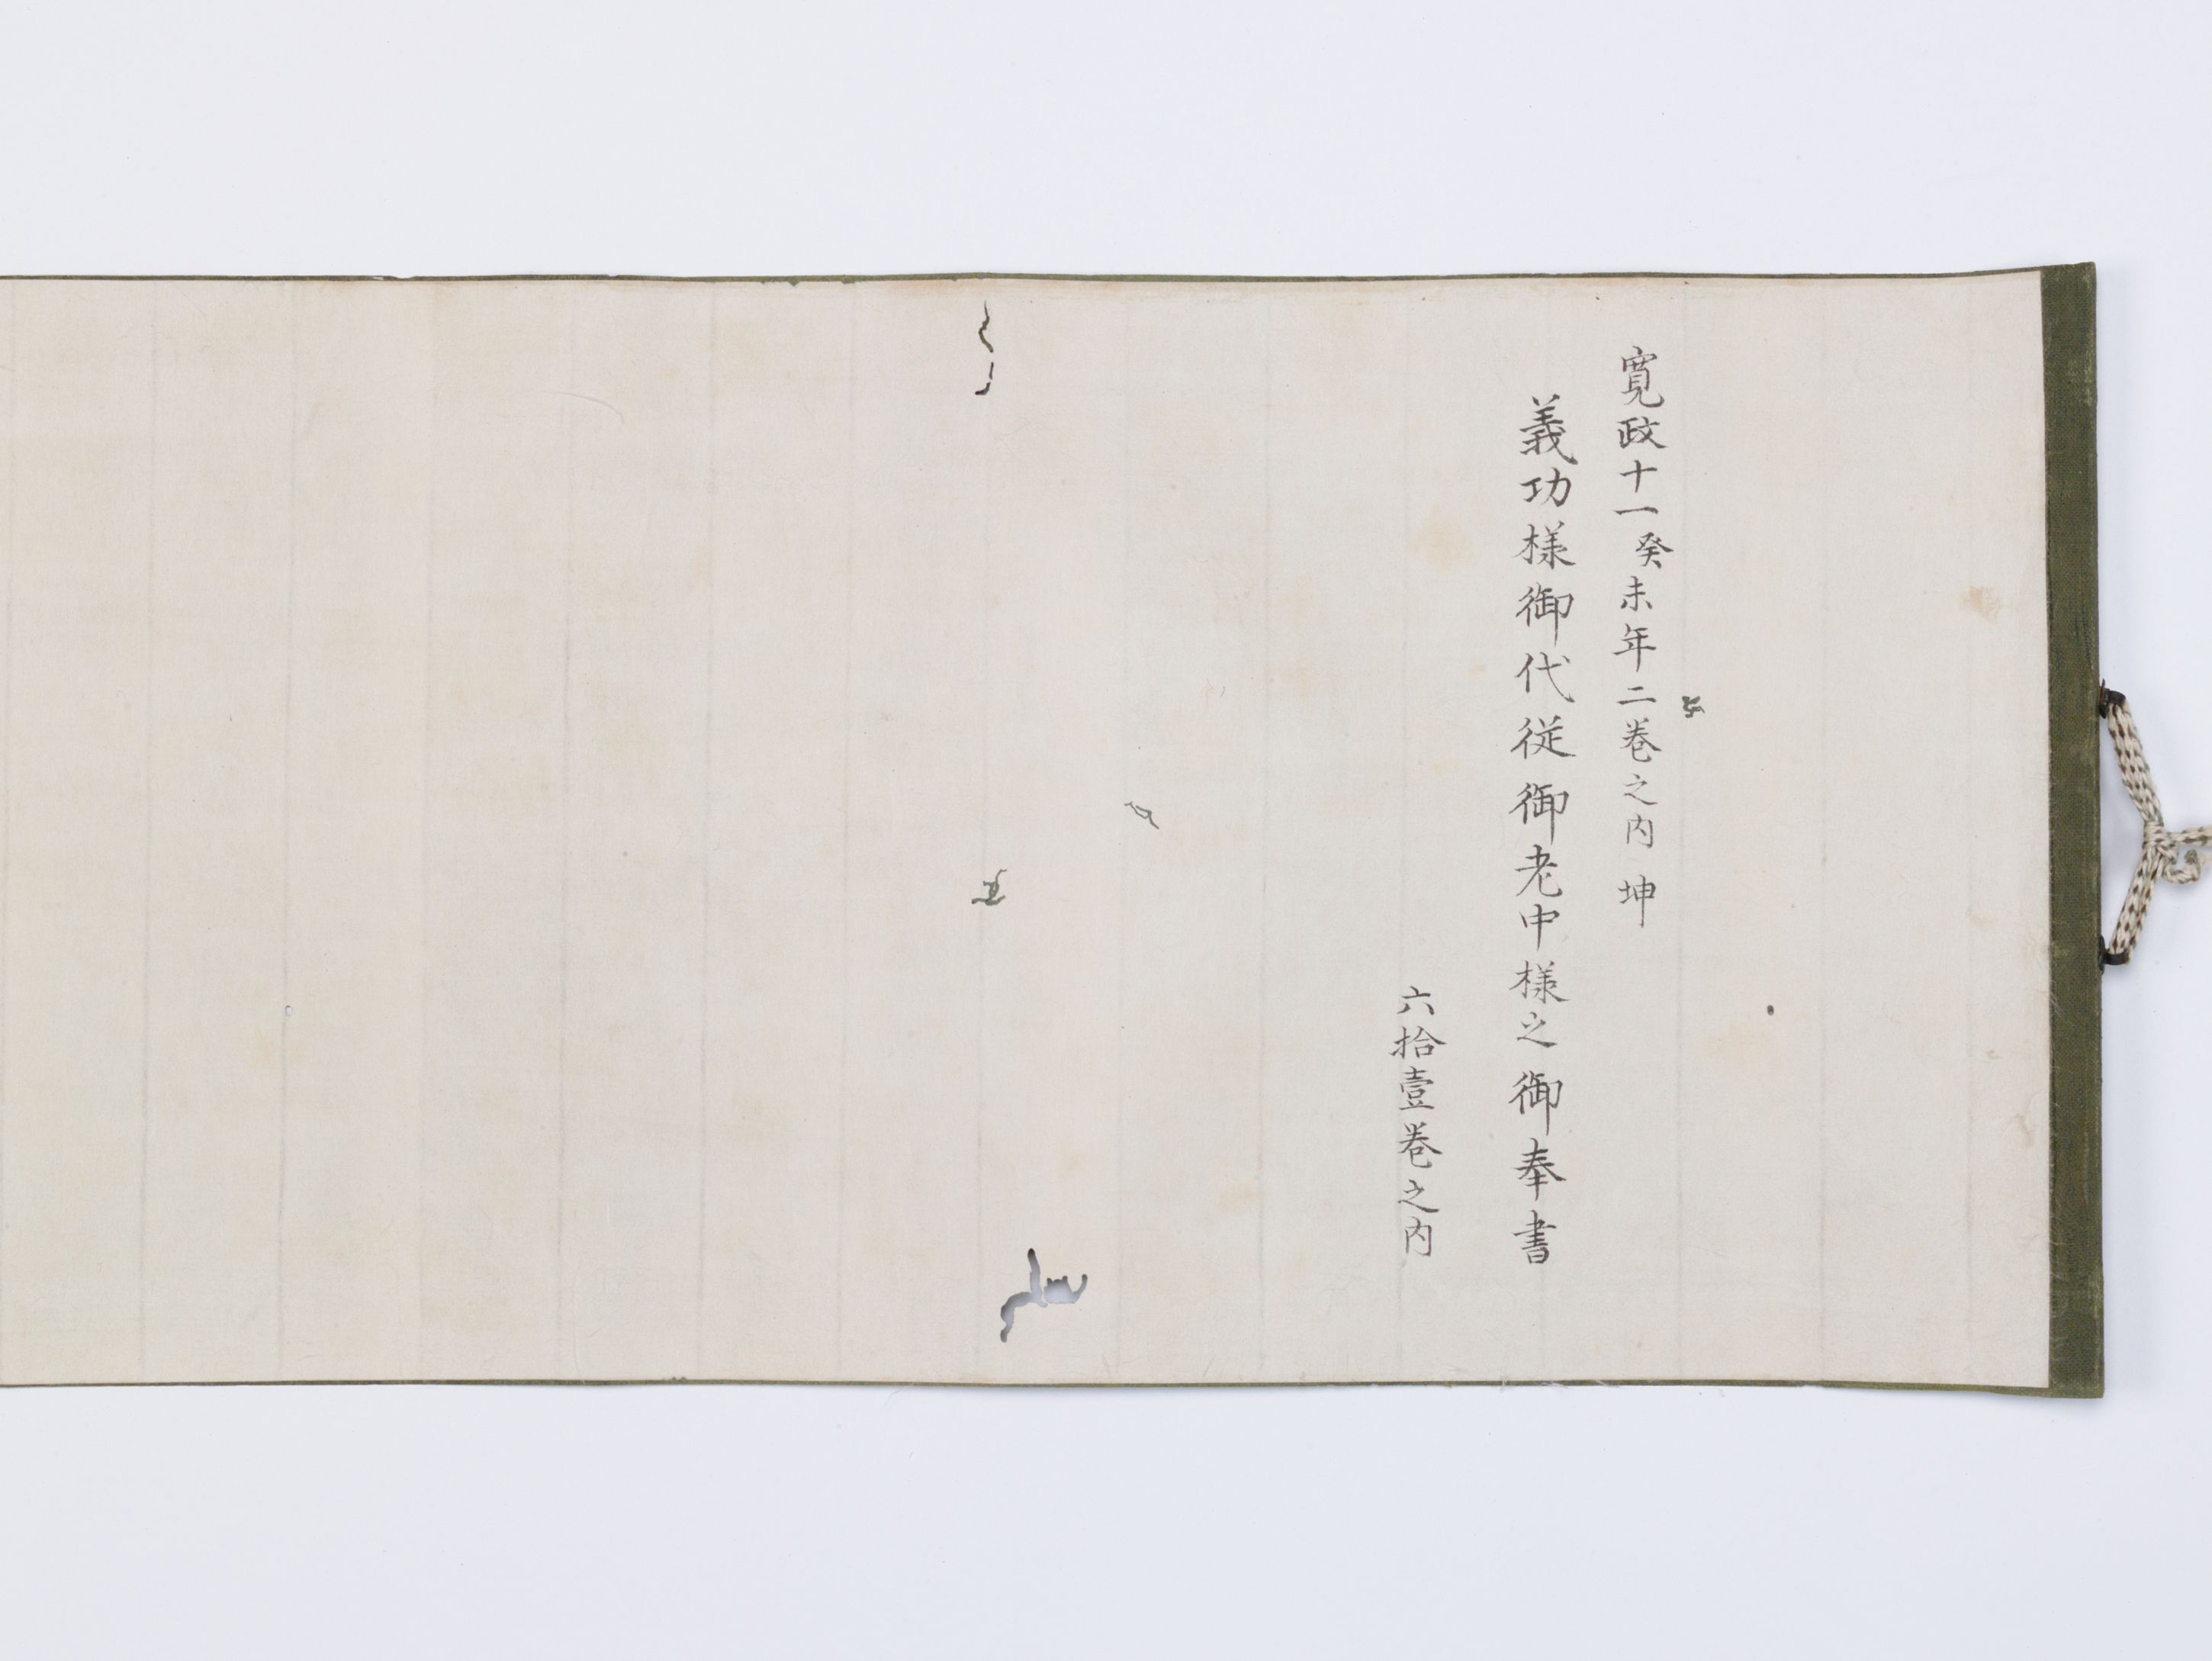 寛政十一癸未年二巻之内 坤
義功様御代従御老中様之御奉書
六拾壹巻之内